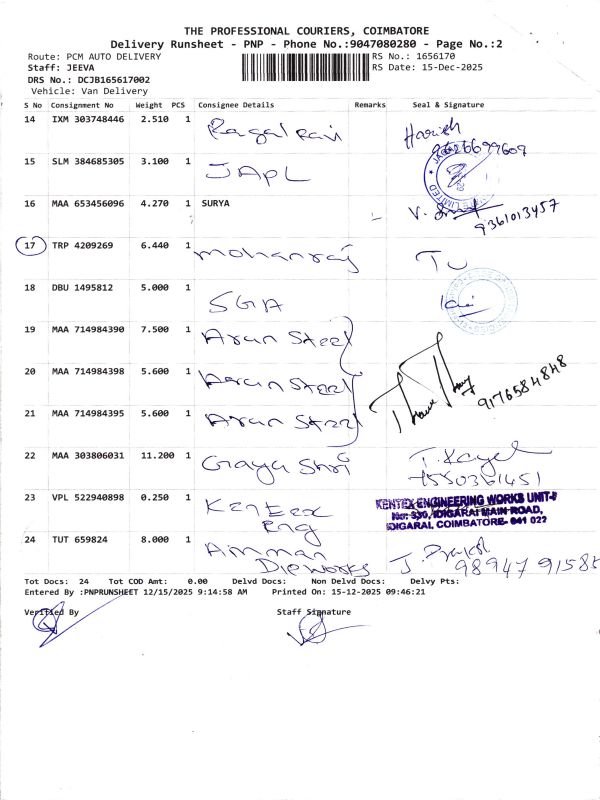 THE PROFESSIONAL COURIERS, COIMBATORE
Delivery Runsheet - PNP - Phone No.:9047080280 - Page No.:2
Route: PCM AUTO DELIVERY RS No.: 1656170
Staff: JEEVA RS Date: 15-Dec-2025
DRS No.: DCJB165617002
Vehicle: Van Delivery
S No Consignment No Weight PCS Consignee Details Remarks Seal & Signature
14 IXM 303748446 2.510 1 Harish
15 SLM 384685305 3.100 1 JAPL
16 MAA 653456096 4.270 1 SURYA
9361013457
17 TRP 4209269 6.440 1 mohanraj
18 DBU 1495812 5.000 1 SGA
19 MAA 714984390 7.500 1 Arun Steel
20 MAA 714984398 5.600 1 Arun Steel
9176584848
21 MAA 714984395 5.600 1 Arun Steel
22 MAA 303806031 11.200 1 Gaya Shri
23 VPL 522940898 0.250 1 Kentex Eng
KENTEX ENGINEERING WORKS UNIT-II
No: 330, IDIGARAI MAIN ROAD,
IDIGARAI, COIMBATORE- 641 022
24 TUT 659824 8.000 1 Amman Die works
98947 91585
Tot Docs: 24 Tot COD Amt: 0.00 Delvd Docs: Non Delvd Docs: Delvy Pts:
Entered By :PNPRUNSHEET 12/15/2025 9:14:58 AM Printed On: 15-12-2025 09:46:21
Verified By Staff Signature